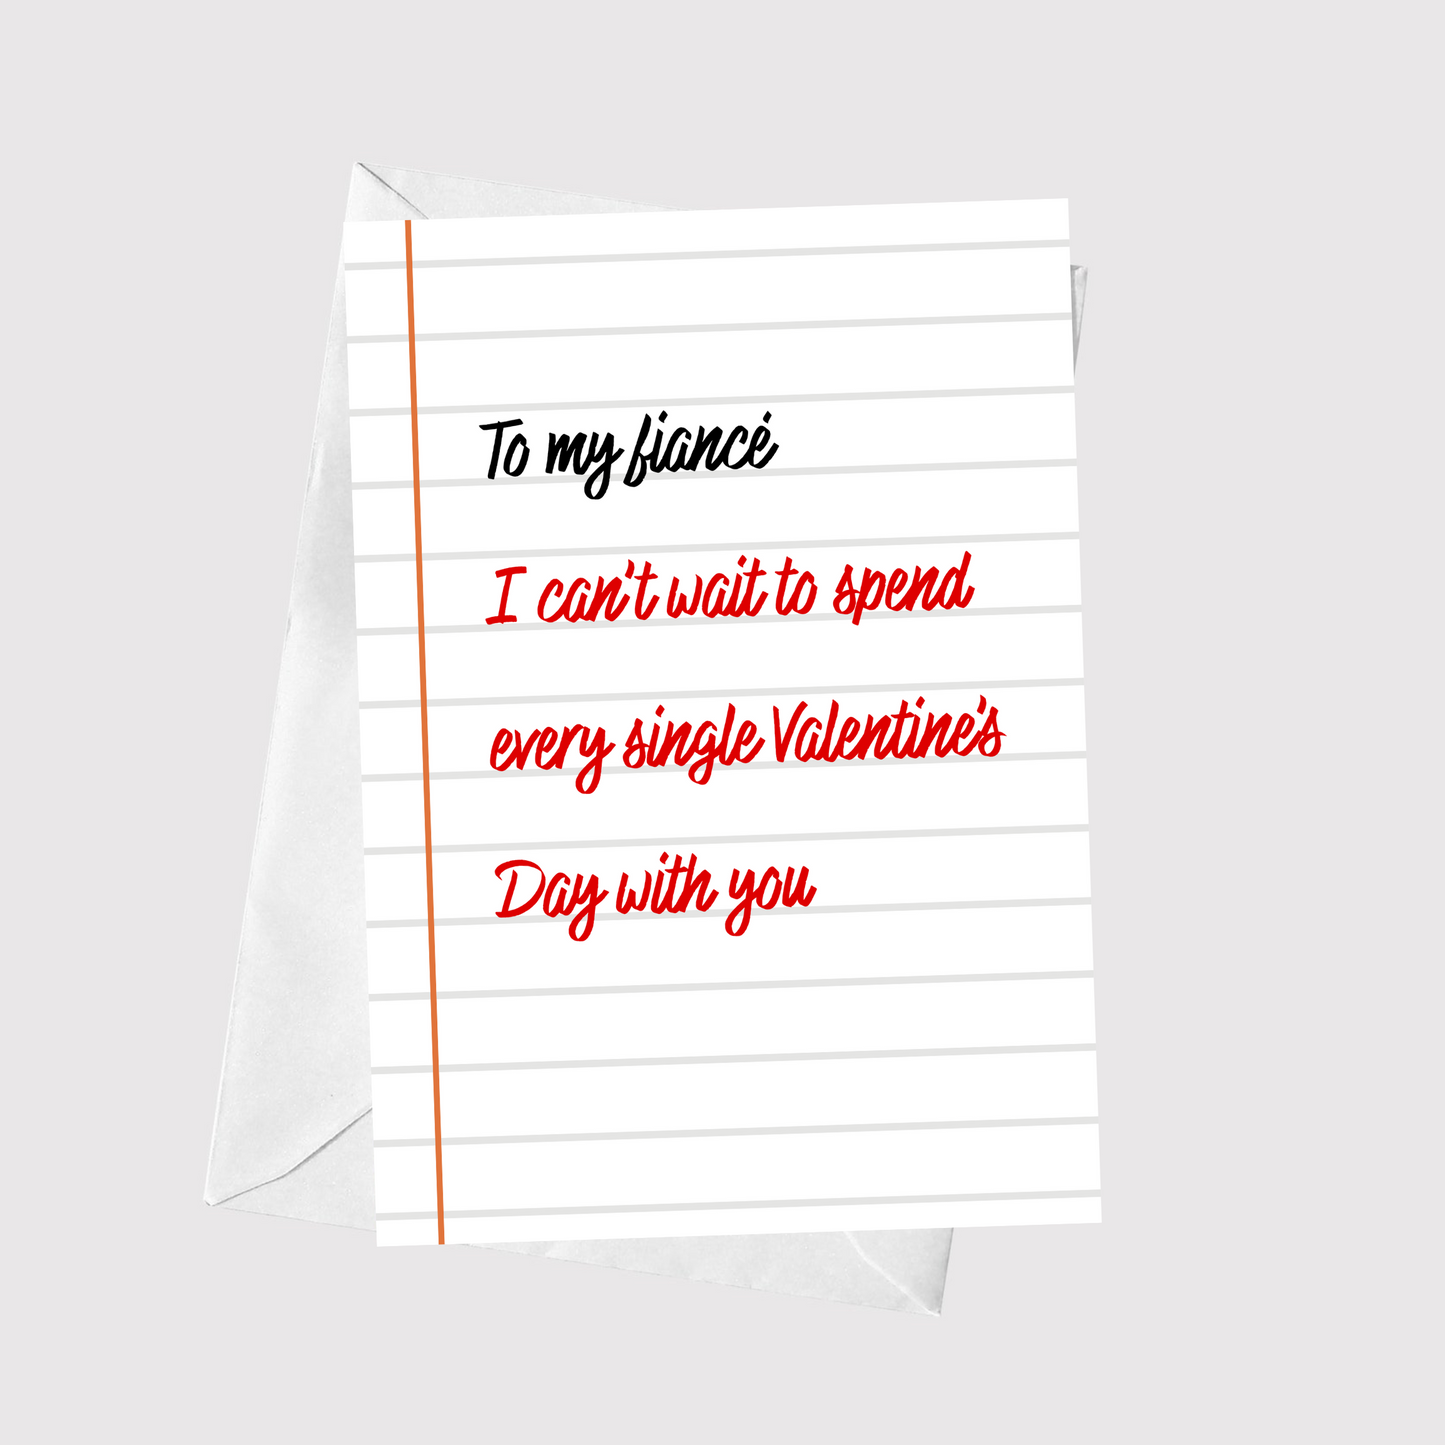 To my fiancé
I can't wait to spend
every single Valentine's
Day with you